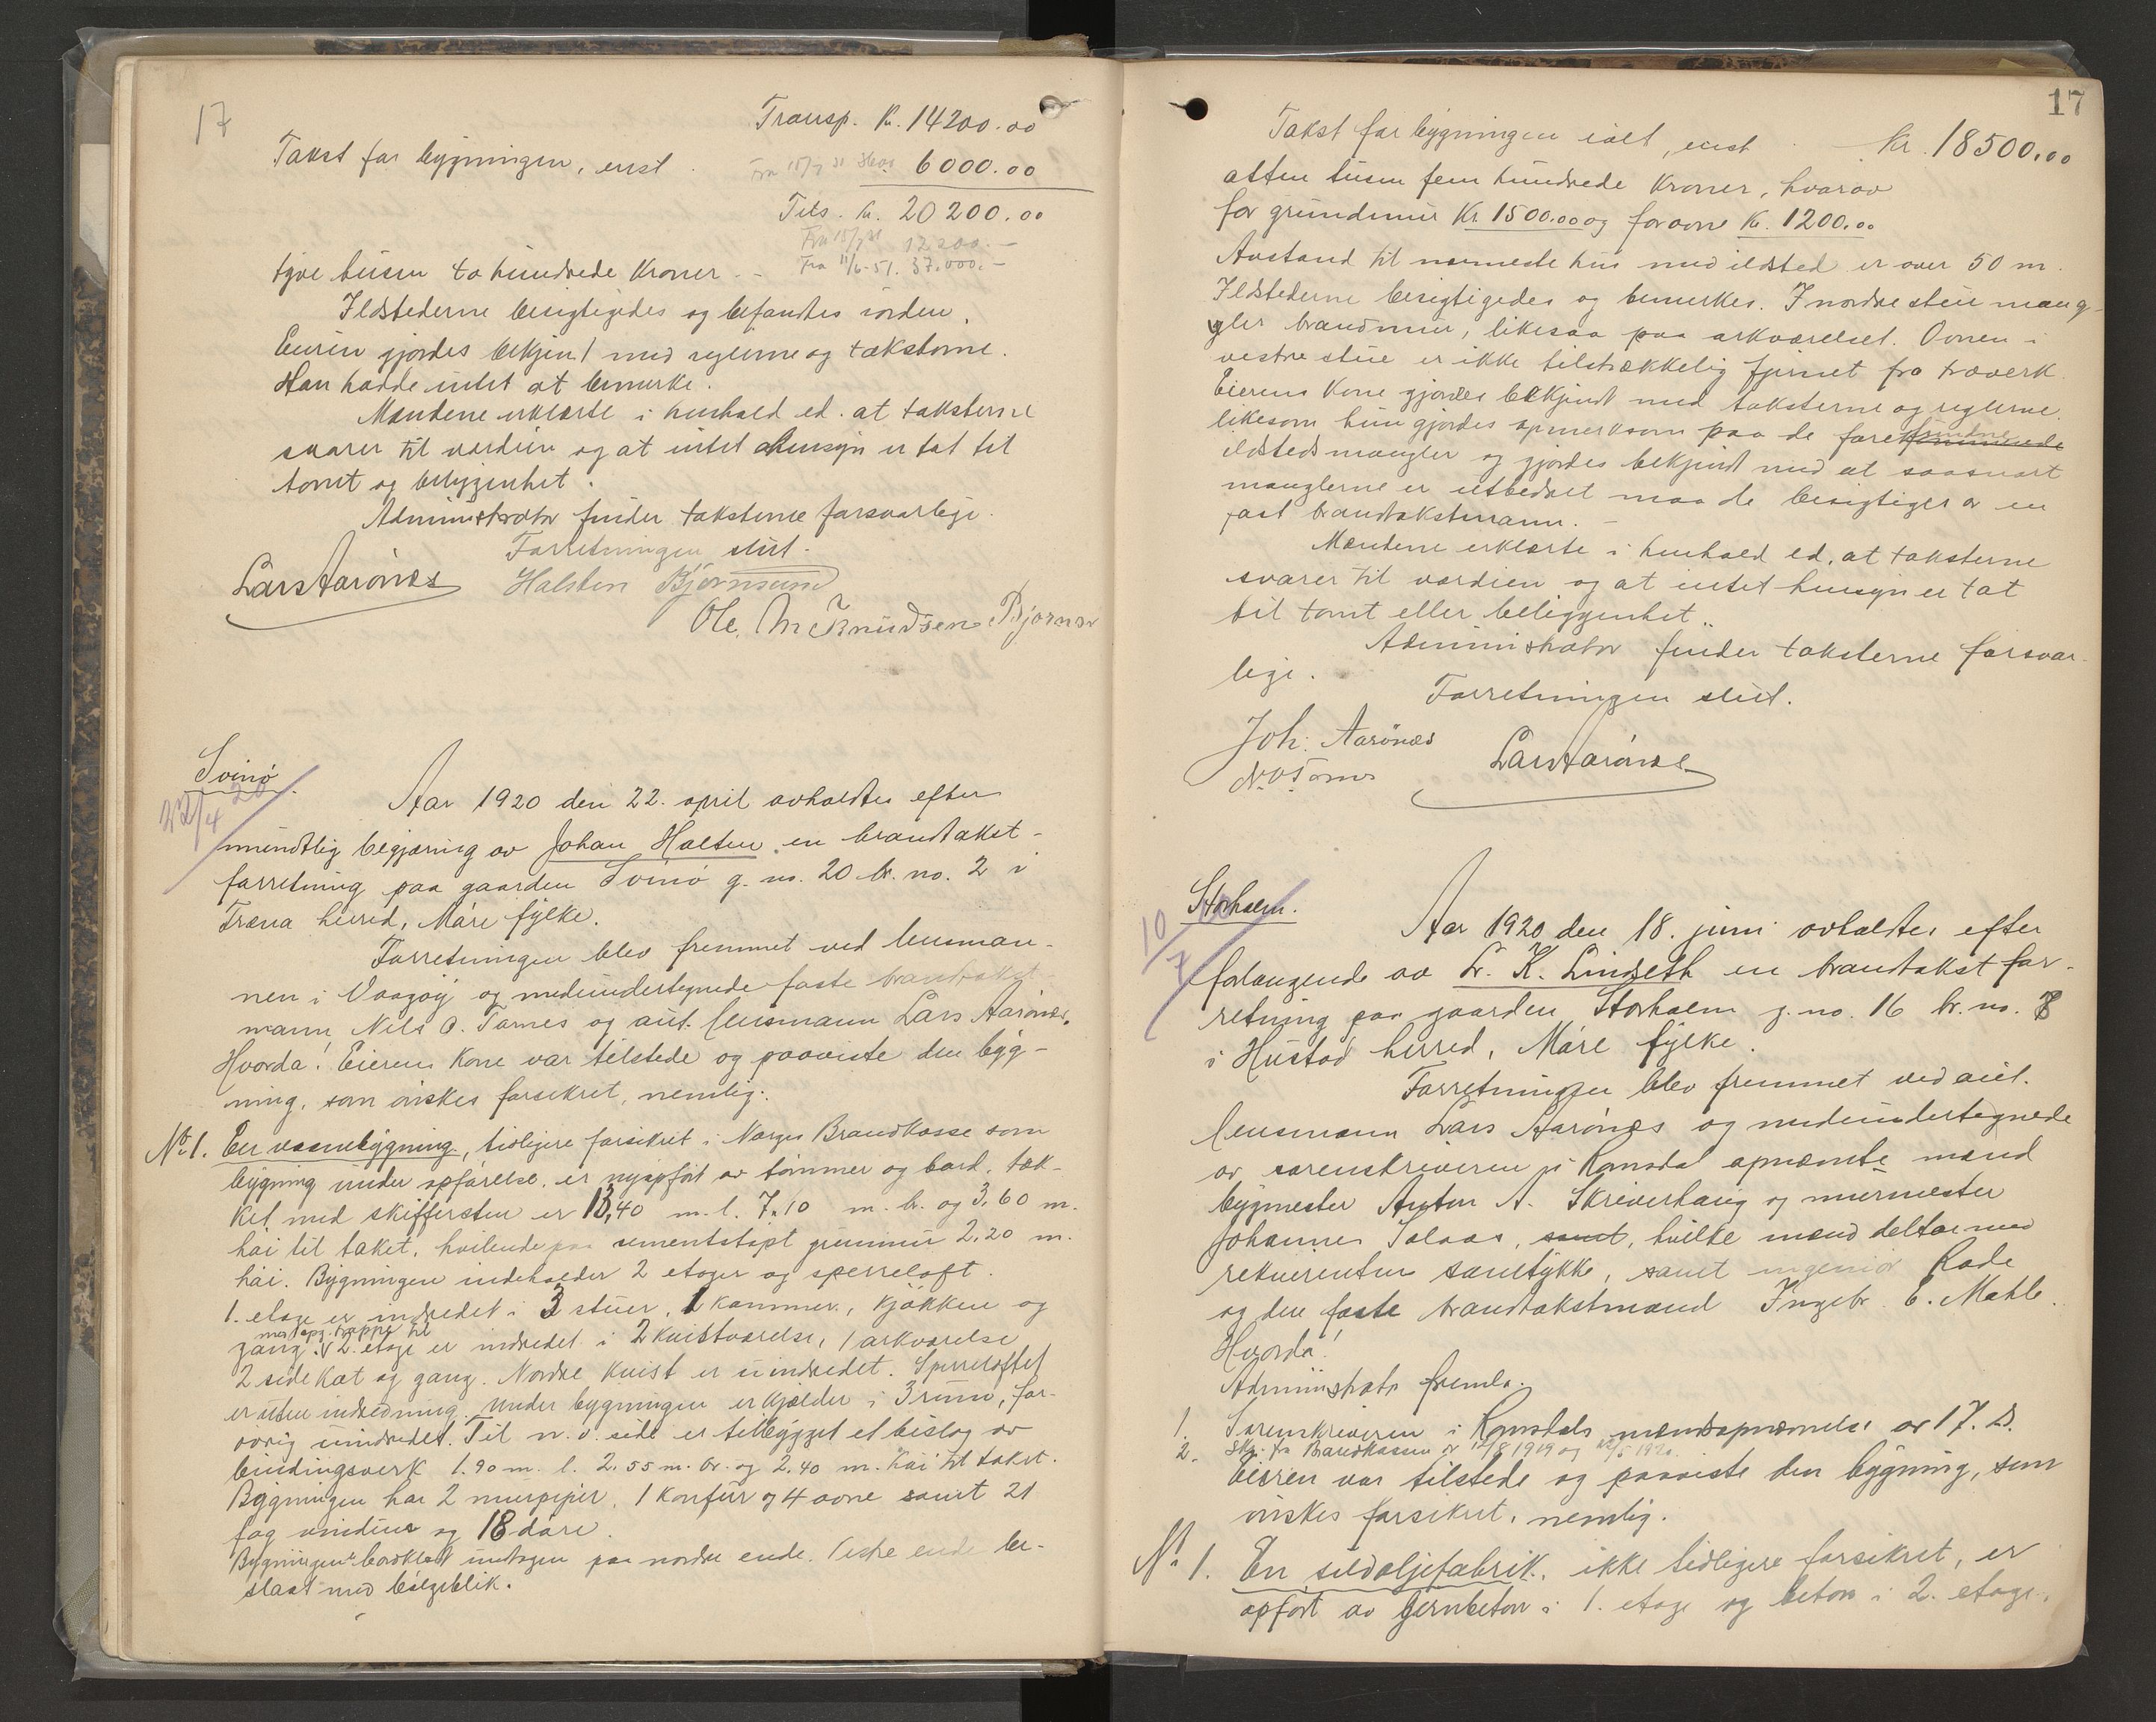 17
Transp. Kr. 14200.00
Takst for bygningen, enst
Fra 15/7 31 6000.00
Tils. kr. 20200.00
Fra 15/7 31 12200.–
Fra 11/6-51. 37.000.–
tyve tusen to hundrede Kroner.–
Ildstederne besigtigedes og befandtes iorden.
Eieren gjordes bekjent med reglerne og taksterne.
Han hadde intet at bemerke.
Mændene erklærte i henhold ed. at taksterne
svarer til værdien og at intet hensyn er tat til
tomt og beliggenhet.
Administrator finder taksterne forsvarlige.
Forretningen slut.
Lars Aarönæs Halsten Bjørnsund
Ole. M. Knudsen Bjørnsr
Svinø
22/4 20
Aar 1920 den 22. april avholdtes efter
mundtlig begjæring av Johan Holten en brandtakst-
forretning paa gaarden Svinø g. no. 20 br. no. 2 i
Fræna herred, Møre fylke.
Forretningen blev fremmet ved lensman-
nen i Vaagøy og medundertegnede faste brandtakst
mann, Nils O. Tornes og aut. lensmann Lars Aarönæs.
Hvorda! Eierens Kone var tilstede og paaviste den byg-
ning, som ønskes forsikret, nemlig:
No 1. En vaanebygning, tidligere forsikret i Norges Brandkasse som
bygning under opførelse, er nyopført av tømmer og bord, tæk-
ket med skiffersten er 13,40 m. l. 7.10 m. br. og 3,60 m.
høi til taket, hvilende paa sementstøpt grunmur 2,20 m.
høi. Bygningen indeholder 2 etager og sperreloft.
1. etage er indredet i 3 stuer, 1 kammer, kjøkken og
med opg. trappe til
gang. 2. etage er indredet i 2 kvistværelse, 1 arkværelse
2 sidekot og gang. Nordre kvist er uindredet. Sperreloftet
er uten indredning. Under bygningen er kjælder i 3 rum, for-
øvrig uindredet. Til n. v. side er tilbygget et bislag av
bindingsverk 1.90 m. l. 2.55 m. br. og 2.40 m. høi til taket.
Bygningen har 2 murpiper, 1 komfur og 4 ovne samt 21
fag vinduer og 18 døre.
Bygningen bordklædt undtagen paa nordre ende. Vestre ende be-
slaat med bølgeblik.
17
Takst for bygningen ialt, enst Kr. 18500.00
atten tusen fem hundrede Kroner, hvorav
for grundmur Kr. 1500.00 og for ovne Kr. 1200.00
Avstand til nærmeste hus med ildsted er over 50 m.
Ildstederne besigtigedes og bemerkes. I nordre stue mang-
gler brandmur, likesaa paa arkværelset. Ovnen i
vestre stue er ikke tilstrækkelig fjernet fra træverk.
Eierens Kone gjordes bekjendt med taksterne og reglerne.
likesom hun gjordes opmerksom paa de forefundne
ildstedsmangler og gjordes bekjendt med at saasnart
manglerne er utbedret maa de besigtiges av en
fast brandtakstmann.–
Mændene erklærte i henhold ed, at taksterne
svarer til værdien og at intet hensyn er tat
til tomt eller beliggenhet.
Administrator finder taksterne forsvar-
lige.
Forretningen slut.
Joh. Aarönæs Lars Aarönæs
N. O. Tornes
Storholm.
10/7 20
Aar 1920 den 18. juni avholdtes efter
forlangende av Kr. K. Lindseth en brandtakstfor-
retning paa gaarden Storholm g. no. 16 br. no. 8
i Hustad herred, Møre fylke.
Forretningen blev fremmet ved aut.
lensmann Lars Aarönæs og medundertegnede
av sorenskriveren i Romsdal opnæmte mænd
bygmester Anton A. Skriverhaug og murmester
Johannes Talaas, samt, hvilke mænd deltar med
rekvirentens samtykke, samt ingeniør Rode
og den faste brandtakstmand Ingebr. E. Mahle.
Hvorda!
Administrator fremla.
1. Sorenskriveren i Romsdals mændsopnævnelse av 17. ds.
2. Skr. fra Brandkassen av 12/8 1919 og 12/5 1920.
Eieren var tilstede og paaviste den bygning, som
ønskes forsikret, nemlig.
No 1. En sildoljefabrik, ikke tidligere forsikret, er
opført av jernbeton i 1. etage og beton i 2. etage.